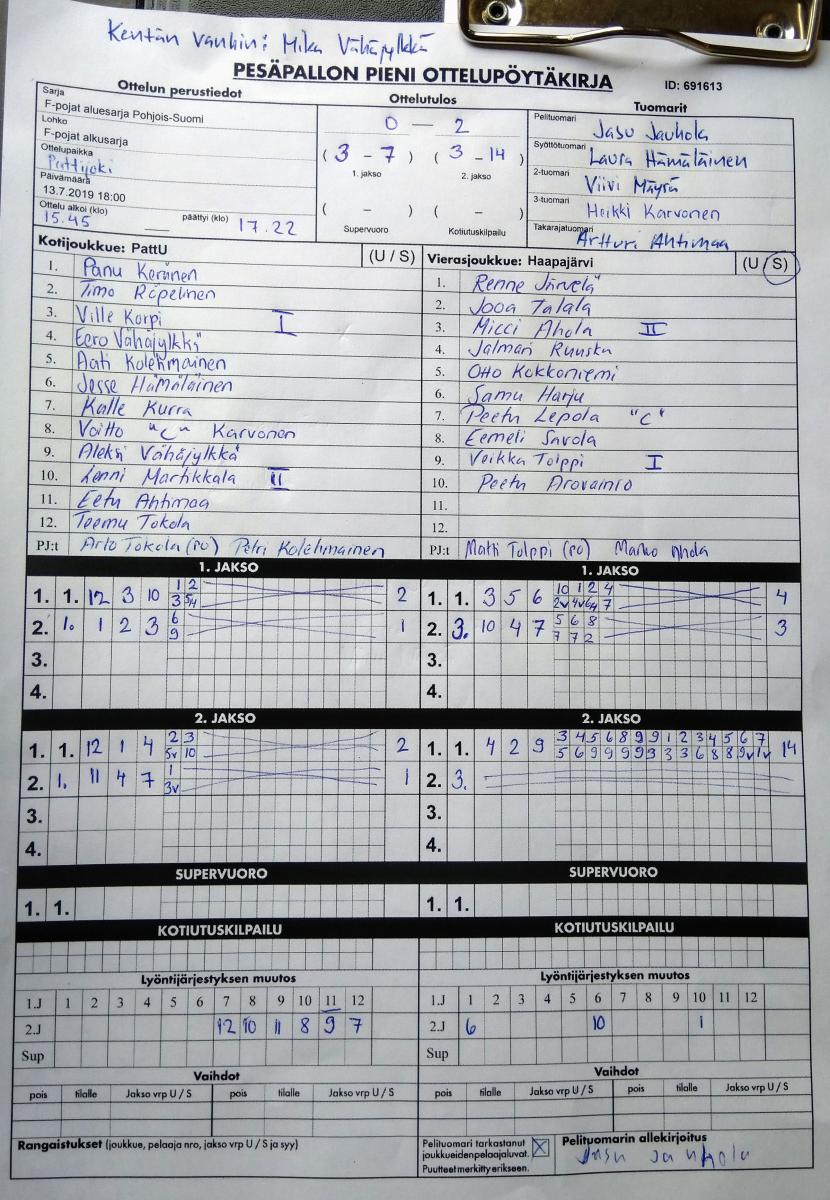 Kentän vanhin: Mika Vähäjylkkä
PESÄPALLON PIENI OTTELUPÖYTÄKIRJA
ID: 691613
Ottelun perustiedot
Sarja
F-pojat aluesarja Pohjois-Suomi
Lohko
F-pojat alkusarja
Ottelupaikka
Pattijoki
Päivämäärä
13.7.2019 18:00
Ottelu alkoi (klo) päättyi (klo)
15.45 17.22
Ottelutulos
0 - 2
(3 - 7) (3 - 14)
1. jakso 2. jakso
( - ) ( - )
Supervuoro Kotiutuskilpailu
Tuomarit
Pelituomari Jasu Jauhola
Syöttötuomari Laura Hämäläinen
2-tuomari Viivi Mäyrä
3-tuomari Heikki Karvonen
Takarajatuomari Artturi Ahtimaa
Kotijoukkue: PattU (U / S)
1. Panu Keränen
2. Timo Röpelinen
3. Ville Korpi I
4. Eero Vähäjylkkä
5. Aati Kolehmainen
6. Jesse Hämäläinen
7. Kalle Kurra
8. Voitto "C" Karvonen
9. Aleksi Vähäjylkkä
10. Lenni Martikkala II
11. Eetu Ahtimaa
12. Teemu Tokola
PJ:t Arto Tokola (PU) Petri Kolehmainen
Vierasjoukkue: Haapajärvi (U / S)
1. Renne Järvelä
2. Jooa Talala
3. Micci Ahola II
4. Jalmari Ruuska
5. Otto Kokkoniemi
6. Samu Harju
7. Peetu Lepola "C"
8. Eemeli Savola
9. Veikka Tolppi I
10. Peetu Arovainio
11.
12.
PJ:t Matti Tolppi (PU) Marko Ahola
1. JAKSO
1. 1. 12 3 10 1 2 2
3 5 4
2. 1. 1 2 3 6 1
9
3.
4.
1. JAKSO
1. 1. 3 5 6 10 1 2 4 4
2v 4v 6v 7
2. 3. 10 4 7 5 6 8 3
7 7 2
3.
4.
2. JAKSO
1. 1. 12 1 4 2 3 2
5v 10
2. 1. 11 4 7 1 1
3v
3.
4.
2. JAKSO
1. 1. 4 2 9 3 4 5 6 8 9 9 1 2 3 4 5 6 7 14
5 6 9 9 9 9 3 3 3 6 8 8 9v 1v
2. 3.
3.
4.
SUPERVUORO
1. 1.
SUPERVUORO
1. 1.
KOTIUTUSKILPAILU
KOTIUTUSKILPAILU
Lyöntijärjestyksen muutos
1.J 1 2 3 4 5 6 7 8 9 10 11 12
2.J 12 10 11 8 9 7
Sup
Lyöntijärjestyksen muutos
1.J 1 2 3 4 5 6 7 8 9 10 11 12
2.J 6 10 1
Sup
Vaihdot
pois tilalle Jakso vrp U / S pois tilalle Jakso vrp U / S
Vaihdot
pois tilalle Jakso vrp U / S pois tilalle Jakso vrp U / S
Rangaistukset (joukkue, pelaaja nro, jakso vrp U / S ja syy)
Pelituomari tarkastanut
joukkueidenpelaajaluvat.
Puutteet merkitty erikseen.
Pelituomarin allekirjoitus
Jasu Jauhola